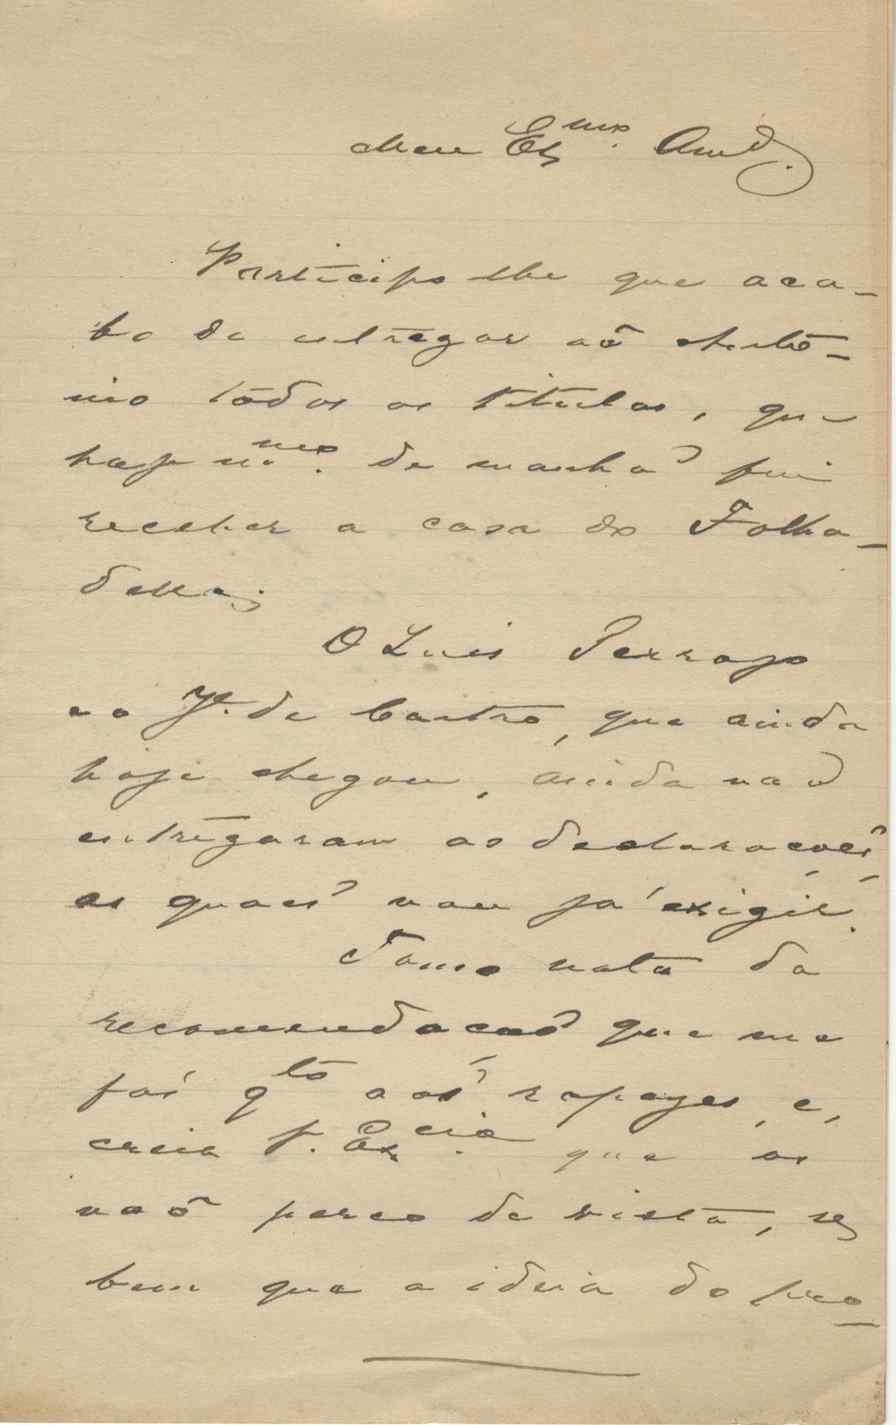 Meu Ex.mo Am.º
Participo lhe que aca-
bo de entregar aõ Antó-
nio tõdos os titulos, que
hoje m.mo de manhã fui
receber a casa do Folha-
della;
O Luis Perrapo
e o J.e de Castro, que ainda
hoje chegou, ainda não
entrégaram as declarações,
as quaes vou já exigir.
Tomo nota da
recomendação que me
faś q.to aos rapazes, e,
creia V. Ex.cia que os
naõ perco de vista, se
bem que a ideia do pro-